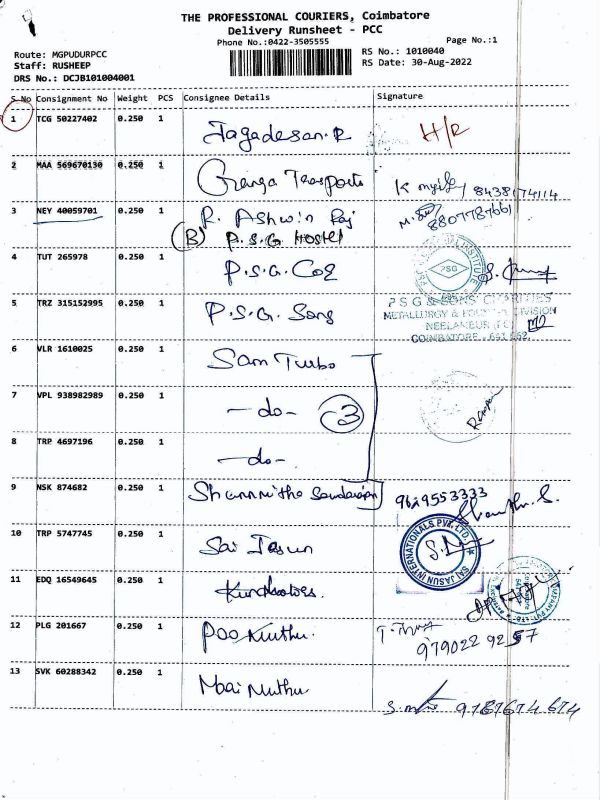 THE PROFESSIONAL COURIERS, Coimbatore
Delivery Runsheet - PCC
Phone No.:0422-3505555
Page No.:1
Route: MGPUDURPCC
Staff: RUSHEEP
DRS No.: DCJB101004001
RS No.: 1010040
RS Date: 30-Aug-2022
S No Consignment No Weight PCS Consignee Details Signature
1 TCG 50227402 0.250 1 Jagadesan.R H/R
2 MAA 569670130 0.250 1 Ganga Transports K 8438174114
3 NEY 40059701 0.250 1 R. Ashwin Raj 8807787661
(B) P.S.G HOSTEL
4 TUT 265978 0.250 1 P.S.G. Coe
PSG
5 TRZ 315152995 0.250 1 P.S.G. Sons
PSG & SONS' CHARITIES
METALLURGY & FOUNDRY DIVISION
NEELAMBUR
COIMBATORE - 641 062
6 VLR 1610025 0.250 1 Sam Turbo
7 VPL 938982989 0.250 1 -do- 3
8 TRP 4697196 0.250 1 -do-
9 NSK 874682 0.250 1 9629553333
10 TRP 5747745 0.250 1 Sai Jasun
SAI JASUN INTERNATIONALS PVT. LTD.
11 EDQ 16549645 0.250 1
12 PLG 201667 0.250 1 Poo Muthu. 979022 9257
13 SVK 60288342 0.250 1 Muthu 9787674674